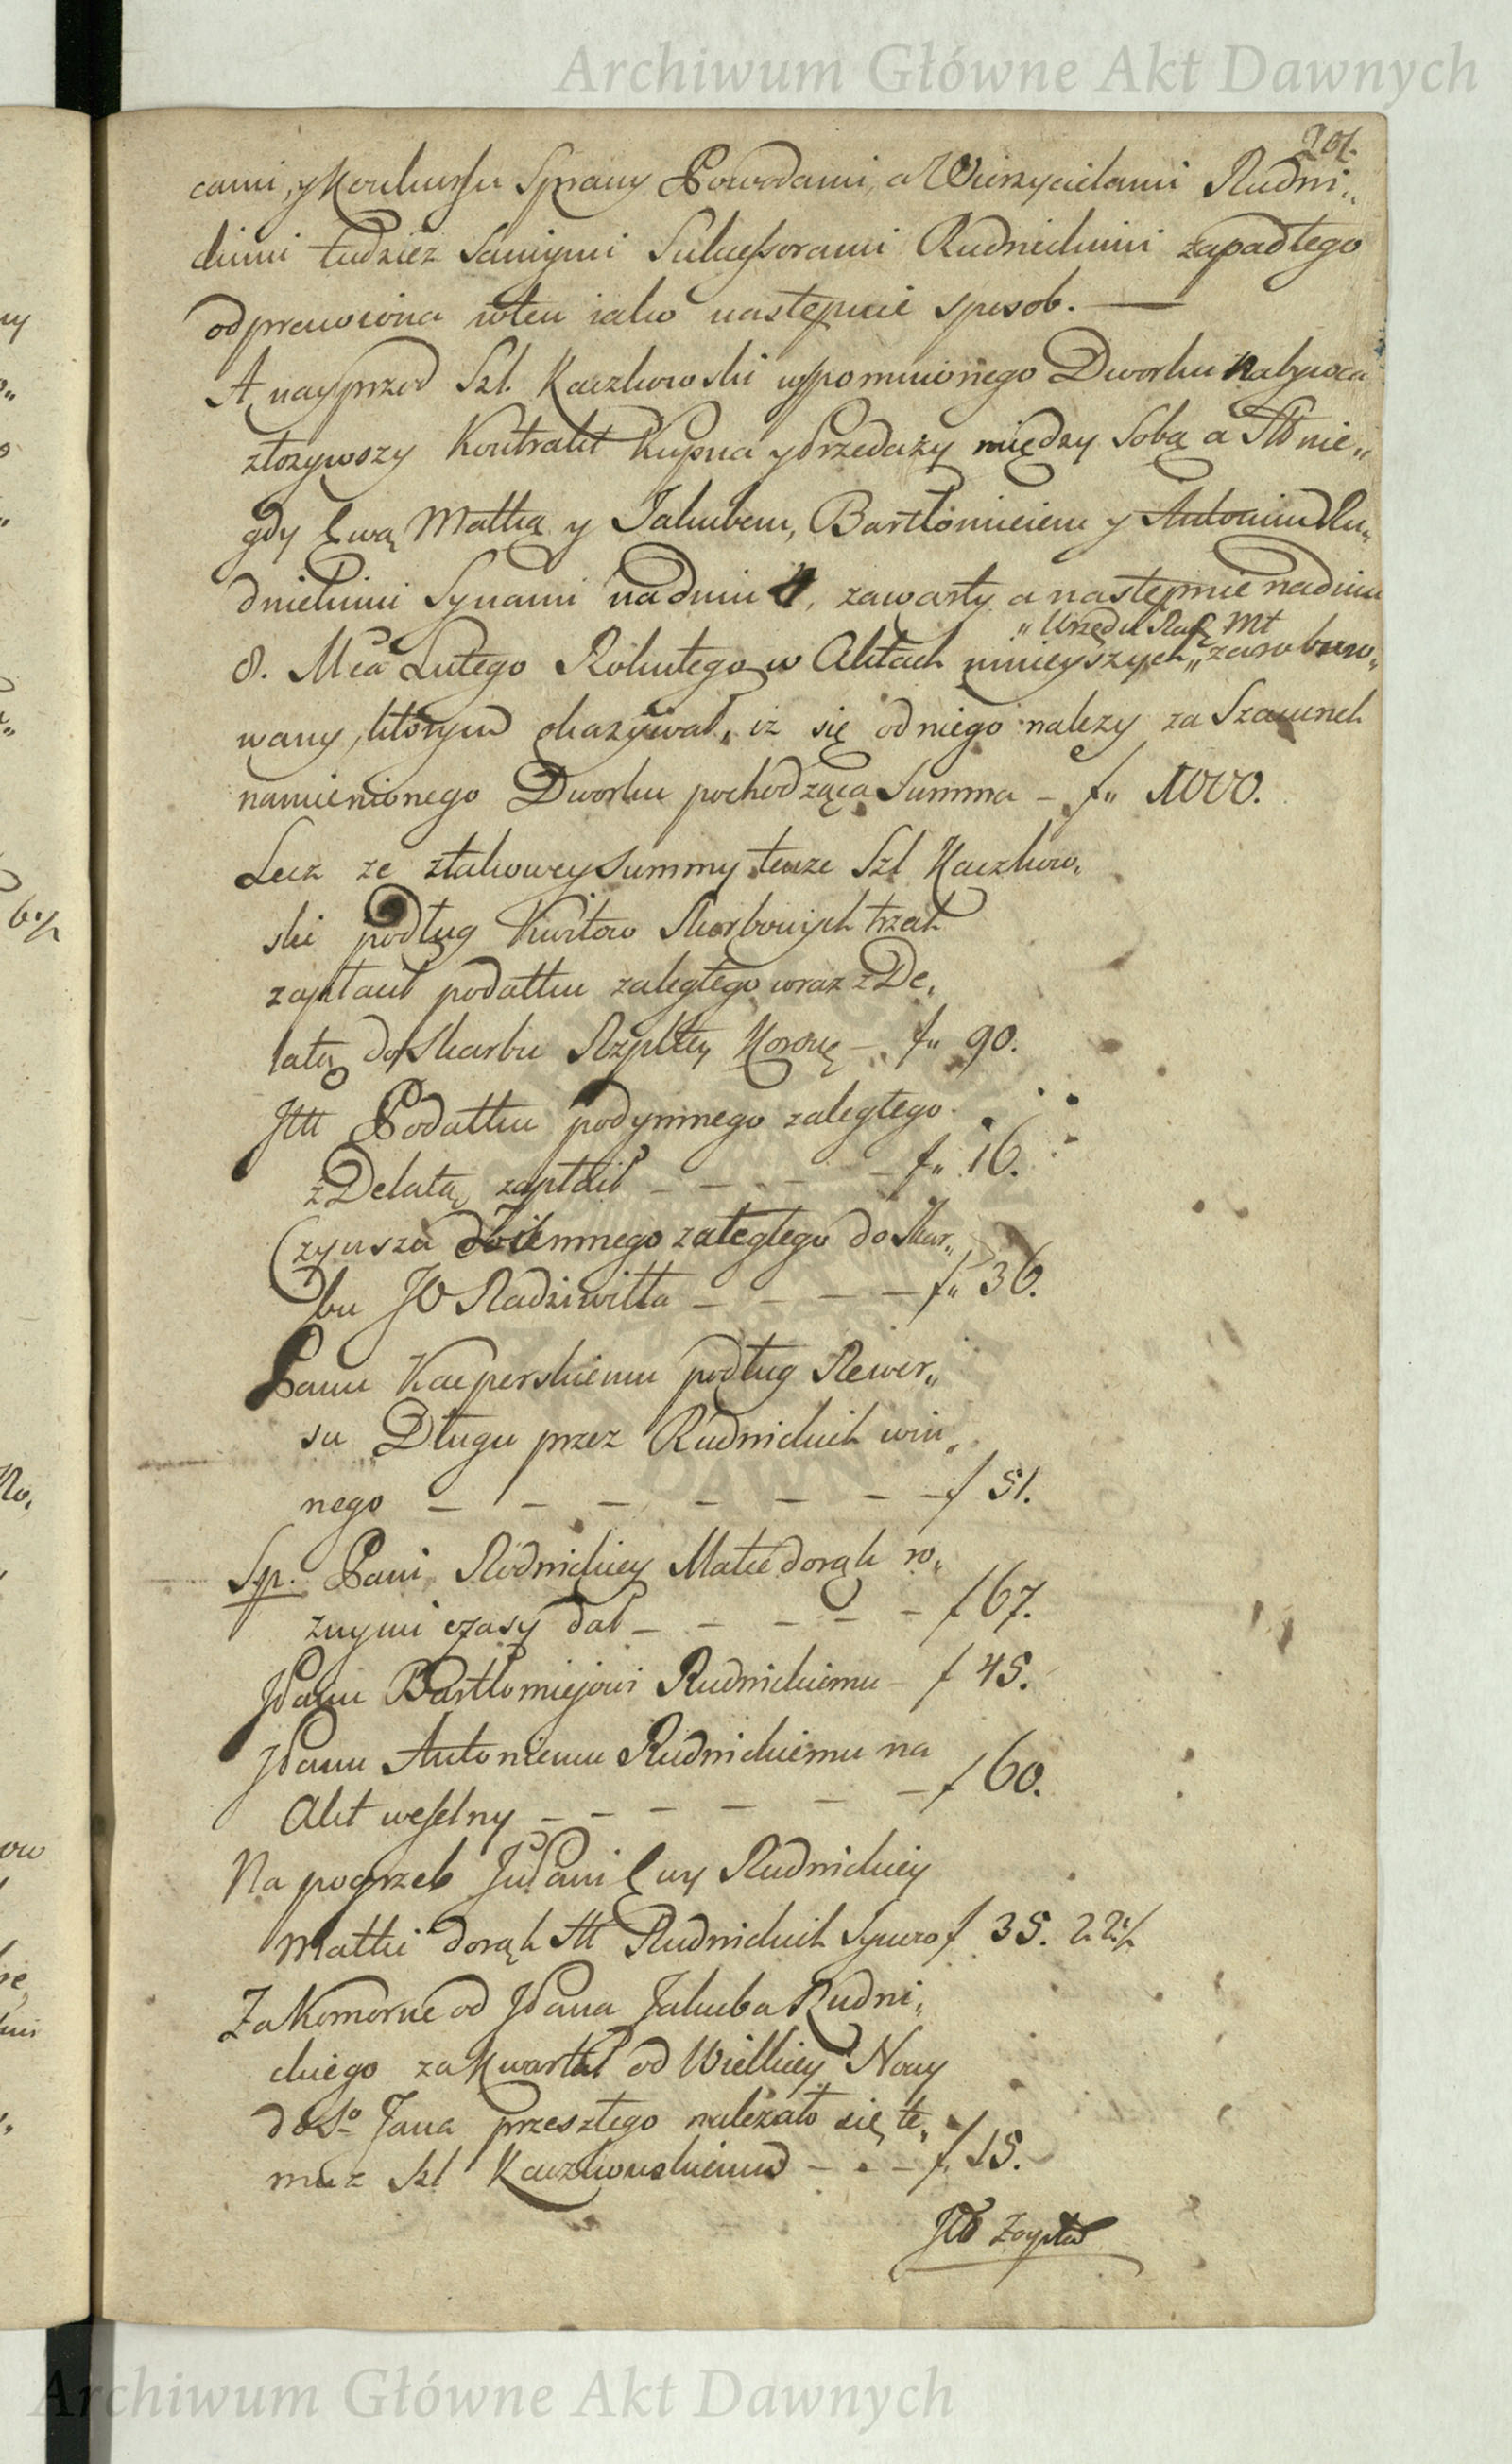 Archiwum Główne Akt Dawnych
201.
cami, y Konkursu Sprawy Powodami, a Wierzycielami Rudni„
ckimi tudziez samymi Sukcessorami Rudnickimi zapadłego
odprawiona wten iako następuie sposob. —
A nayprzod Szl. Kaczkowski wspomnionego Dworku nabywca
złozywszy Kontrakt Kupna y Przedaży między Sobą a nie„
gdy Ewą Matką y Jakubem, Bartłomieiem y Antonim Ru„
dnickimi Synami nadniu 4, zawarty a następnie nadniu
„Urzędu Mt
8. Mca Lutego Roku tego w Aktach ninieyszych „ zaroburo„
wany, którym okazywał, iz się odniego nalezy za Szacunek
namienionego Dworku pochodząca Summa — f„ 1000.
Lecz ze ztakowey Summy tenze Szl Kaczkow„
ski podług Kwitow Skarbowych trzech
zapłacił podatku zaległego wraz z De„
latą do Skarbu Rzpltey Koronę — f„ 90.
Itt Podatku podymnego zaległego
z Delatą zapłacił — — — — f„ 16.
Czynszu zaległego do Skar„
bu JO Radziwiłła — — — — f„ 36.
Panu Kacperskiemu podług Rewer„
su Długu przez Rudnickich win„
nego — — — — — — — f 51.
Sp. Pani Rudnickiey Matce do rąk ro„
znymi czasy dał — — — — — f 67.
JPanu Bartłomiejowi Rudnickiemu — f 45.
JPanu Antoniemu Rudnickiemu na
Akt weselny — — — — — — f 60.
Na pogrzeb JuPani Ewy Rudnickiey
Matki do rąk Rudnickich Synow f 35. 22½
Za Komorne od JPana Jakuba Rudni„
ckiego za Kwartał od Wielkiey Nocy
do So Jana przeszłego nalezało się te„
muz Szl Kaczkowskiemu — — — f. 15.
Archiwum Główne Akt Dawnych